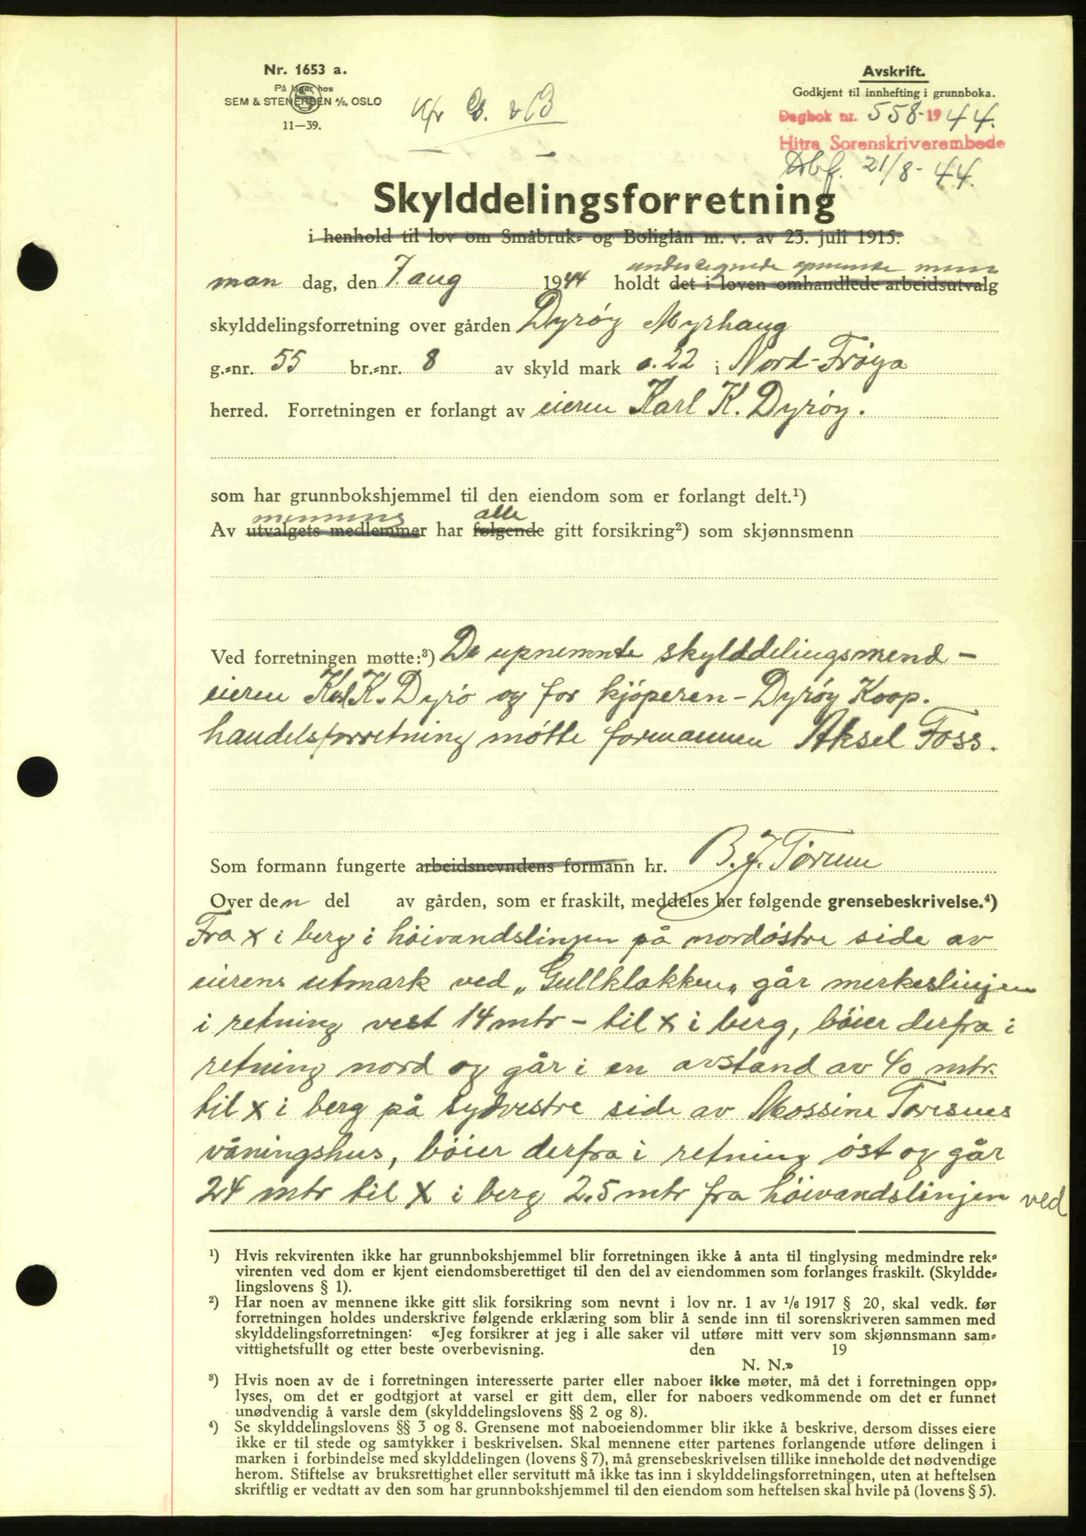 Nr. 1653 a.
På lager hos
SEM & STENERSEN A/S, OSLO
11—39.
Avskrift.
Godkjent til innhefting i grunnboka.
Dagbok nr. 558-1944.
Hitra Sorenskriverembede
Dbf. 21/8-44.
Skylddelingsforretning
i henhold til lov om Småbruk- og Boliglån m. v. av 23. juli 1915.
undertegnede opnemnte menn
man dag, den 7. aug 1944 holdt det i loven omhandlede arbeidsutvalg
skylddelingsforretning over gården Dyrøy Myrhaug
g.-nr. 55 br.-nr. 8 av skyld mark 0.22 i Nord-Frøya
herred. Forretningen er forlangt av eieren Karl K. Dyrøy.
som har grunnbokshjemmel til den eiendom som er forlangt delt.¹)
mennene alle
Av utvalgets medlemmer har følgende gitt forsikring²) som skjønnsmenn
Ved forretningen møtte:³) De opnemnte skylddelingsmend -
eieren Karl K. Dyrö og for kjöperen - Dyröy Koop.
handelsforretning mötte formannen Aksel Foss.
Som formann fungerte arbeidsnevndens formann hr. B. J. Tørum
Over den del av gården, som er fraskilt, meddeles her følgende grensebeskrivelse.⁴)
Fra x i berg i höivandslinjen på nordöstre side av
eierens utmark ved „Gullklakken„ går merkeslinjen
i retning vest 14 mtr - til x i berg, böier derfra i
retning nord og går i en avstand av 40 mtr.
til x i berg på sydvestre side av Mossine Toresens
våningshus, böier derfra i retning öst og går
24 mtr til x i berg 2.5 mtr fra höivandslinjen ved
¹) Hvis rekvirenten ikke har grunnbokshjemmel blir forretningen ikke å anta til tinglysing medmindre rek-
virenten ved dom er kjent eiendomsberettiget til den del av eiendommen som forlanges fraskilt. (Skyldde-
lingslovens § 1).
²) Har noen av mennene ikke gitt slik forsikring som nevnt i lov nr. 1 av 1/6 1917 § 20, skal vedk. før
forretningen holdes underskrive følgende erklæring som blir å sende inn til sorenskriveren sammen med
skylddelingsforretningen: «Jeg forsikrer at jeg i alle saker vil utføre mitt verv som skjønnsmann sam-
vittighetsfullt og etter beste overbevisning. den 19
N. N.»
³) Hvis noen av de i forretningen interesserte parter eller naboer ikke møter, må det i forretningen opp-
lyses, om det er godtgjort at varsel er gitt dem, eller for naboers vedkommende om det er funnet
unødvendig å varsle dem (skylddelingslovens §§ 2 og 8).
⁴) Se skylddelingslovens §§ 3 og 8. Grensene mot naboeiendommer blir ikke å beskrive, dersom disses eiere
ikke er til stede og samtykker i beskrivelsen. Skal mennene etter partenes forlangende utføre delingen i
marken i forbindelse med skylddelingen (lovens § 7), må grensebeskrivelsen tillike inneholde det nødvendige
herom. Stiftelse av bruksrettighet eller servitutt må ikke tas inn i skylddelingsforretningen, uten at heftelsen
skriftlig er vedtatt av den som har grunnbokshjemmel til den eiendom som heftelsen skal hvile på (lovens § 5).